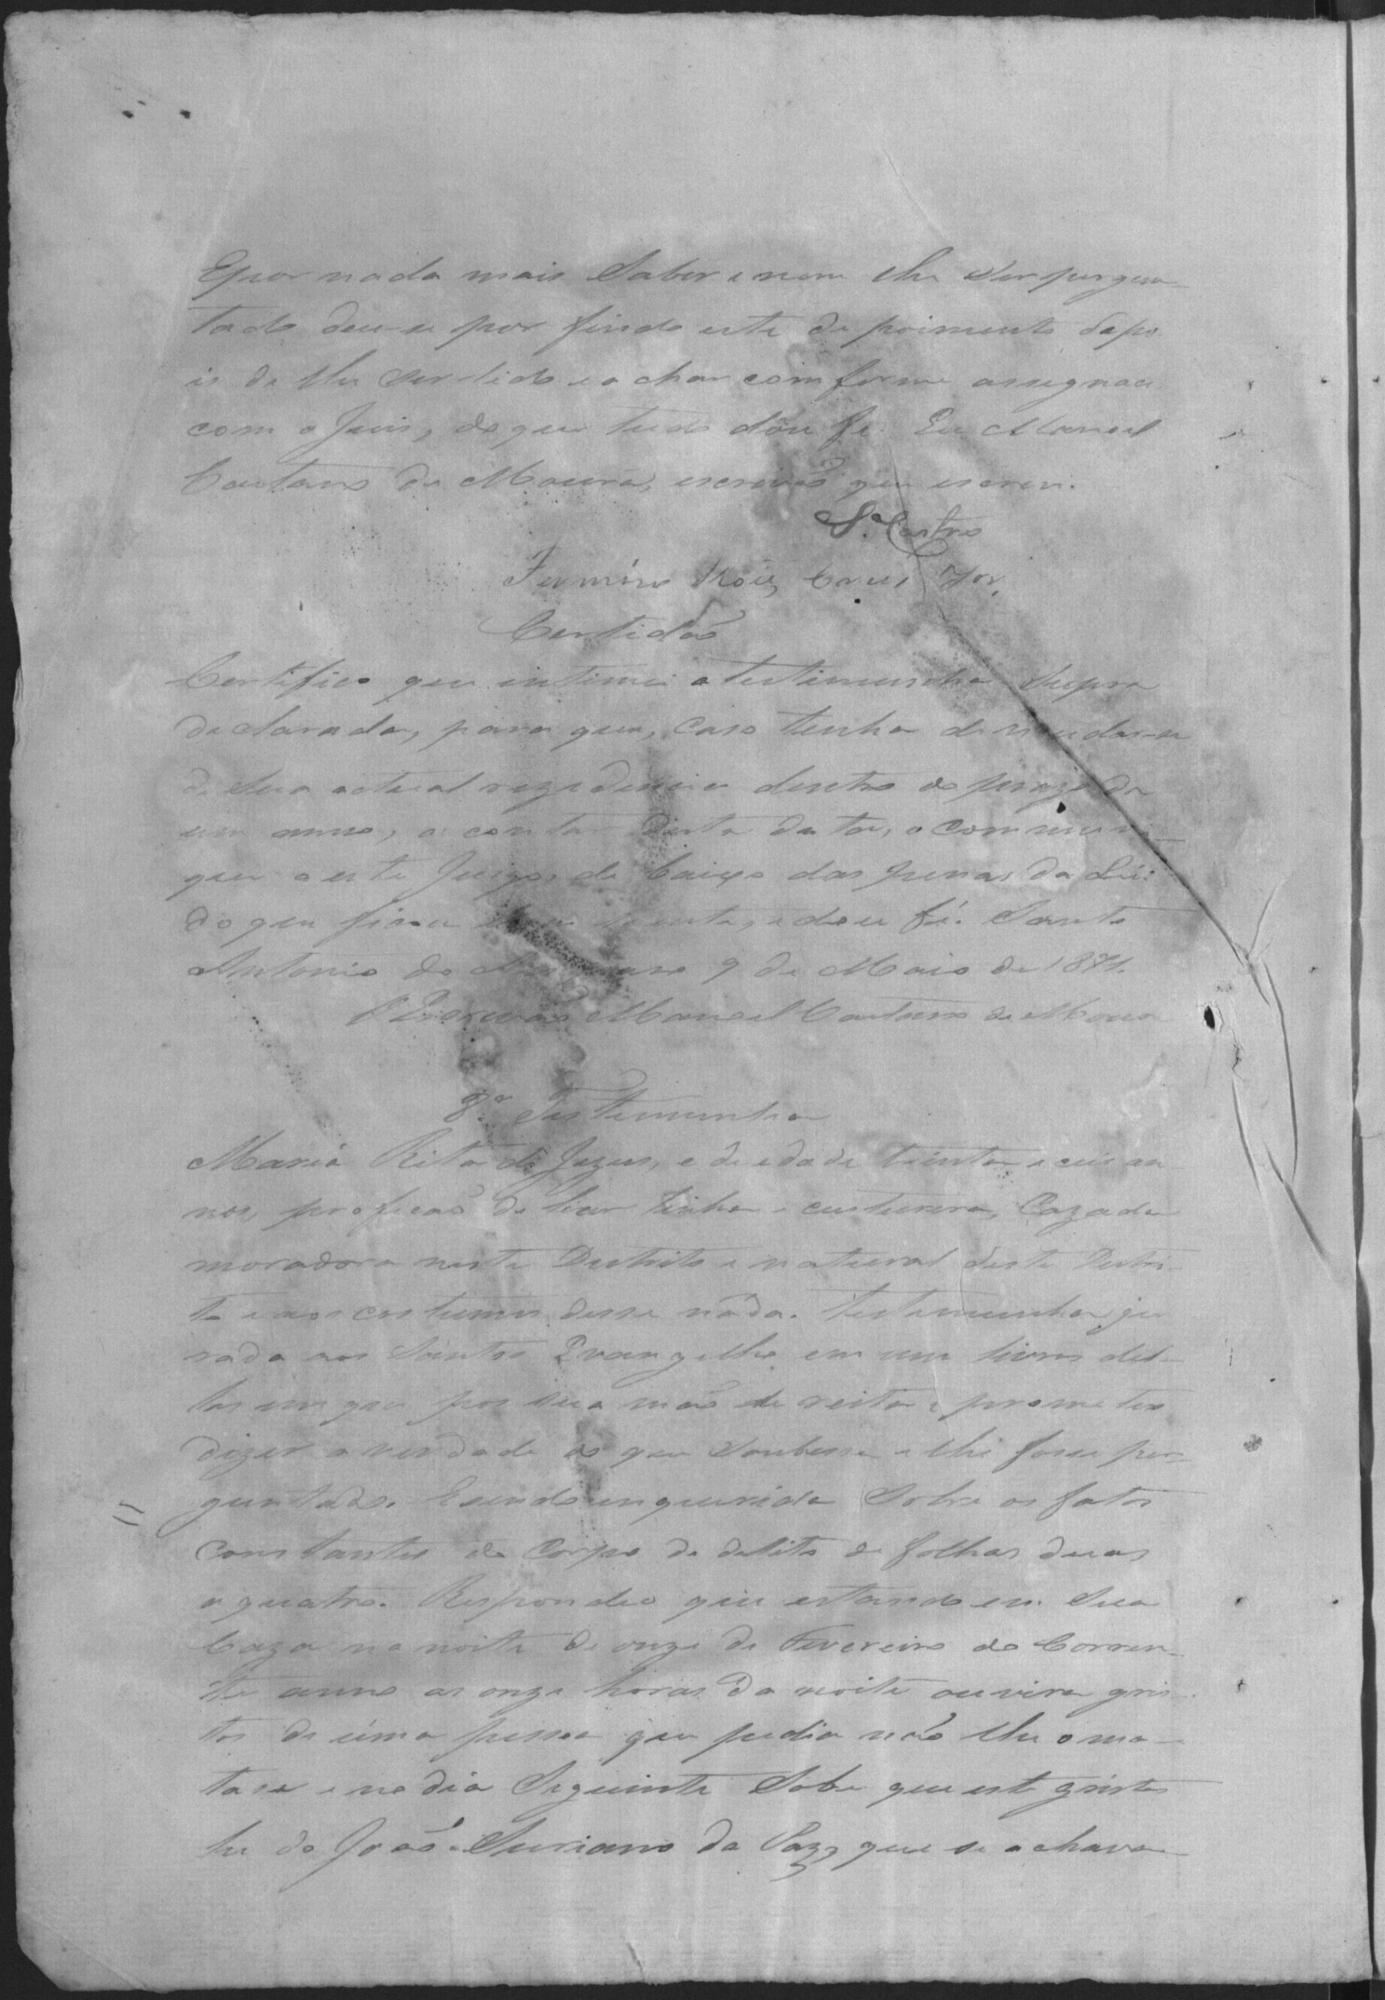 E por nada mais Saber e nem lhe Ser pergun-
tado deu-se por findo este de poimento depo
is de lhe Ser lido e achar comforme assegnou
com o Juis, do que tudo dou fé. Eu Manoel
Caetano de Moura, escrivão que escrevi.
S.ª Castro
Fermino Roiz
Certidão
Certifico que intimei a testimunha Supra
declarada, para que, Caso tenha de mudar-se
de Sua actual rezidencia dentro do prazo de
um anno, a contar desta data, o communi-
que a este Juizo de baixo das penas da Lei:
do que ficou e dou fé. Santo
Antonio do 9 de Maio de 1871.
O Escrivão Manoel Caetano de Moura
8.ª Testemunha
Maria Rita de Jezus, e de edade trinta e seis an-
nos, profição de fiar linha e custureira, Cazada
moradora neste Destrito e natural deste Destri-
to e aos costumes disse nada. Testemunha ju
rada aos Santos Evangelhos em um livro del-
les em que pos sua mão de reita e prometeo
dizer a verdade do que Soubesse e lhe fosse per-
guntado. E sendo enquerida Sobre os fatos
constantes do Corpo de delito de folhas duas
a quatro. Respondeo que estando em Sua
Caza na noite de onze de Fevereiro do Corren-
te anno as onze horas da noite ouvira gris-
tos de uma pessoa que pedia não lhe o ma-
tase e no dia Seguinte Sobe que este gristo
he de João Suriano da Paz, que se achava